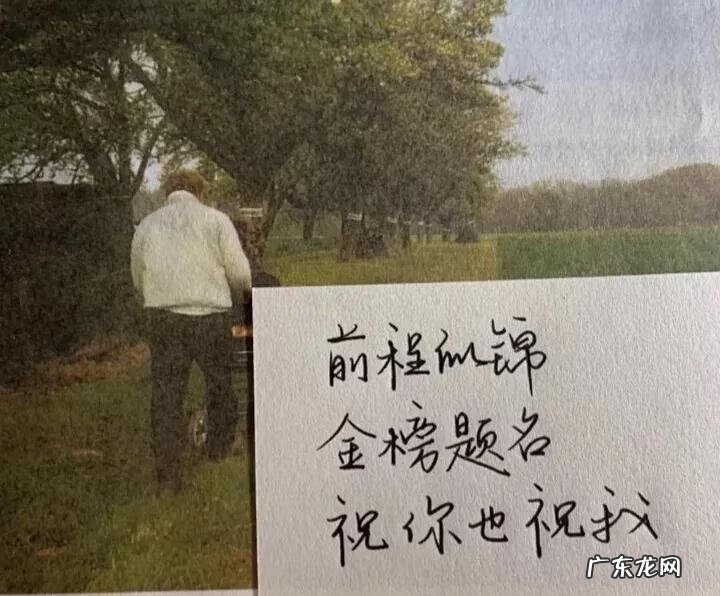 前程似锦
金榜题名
祝你也祝我
广东龙网